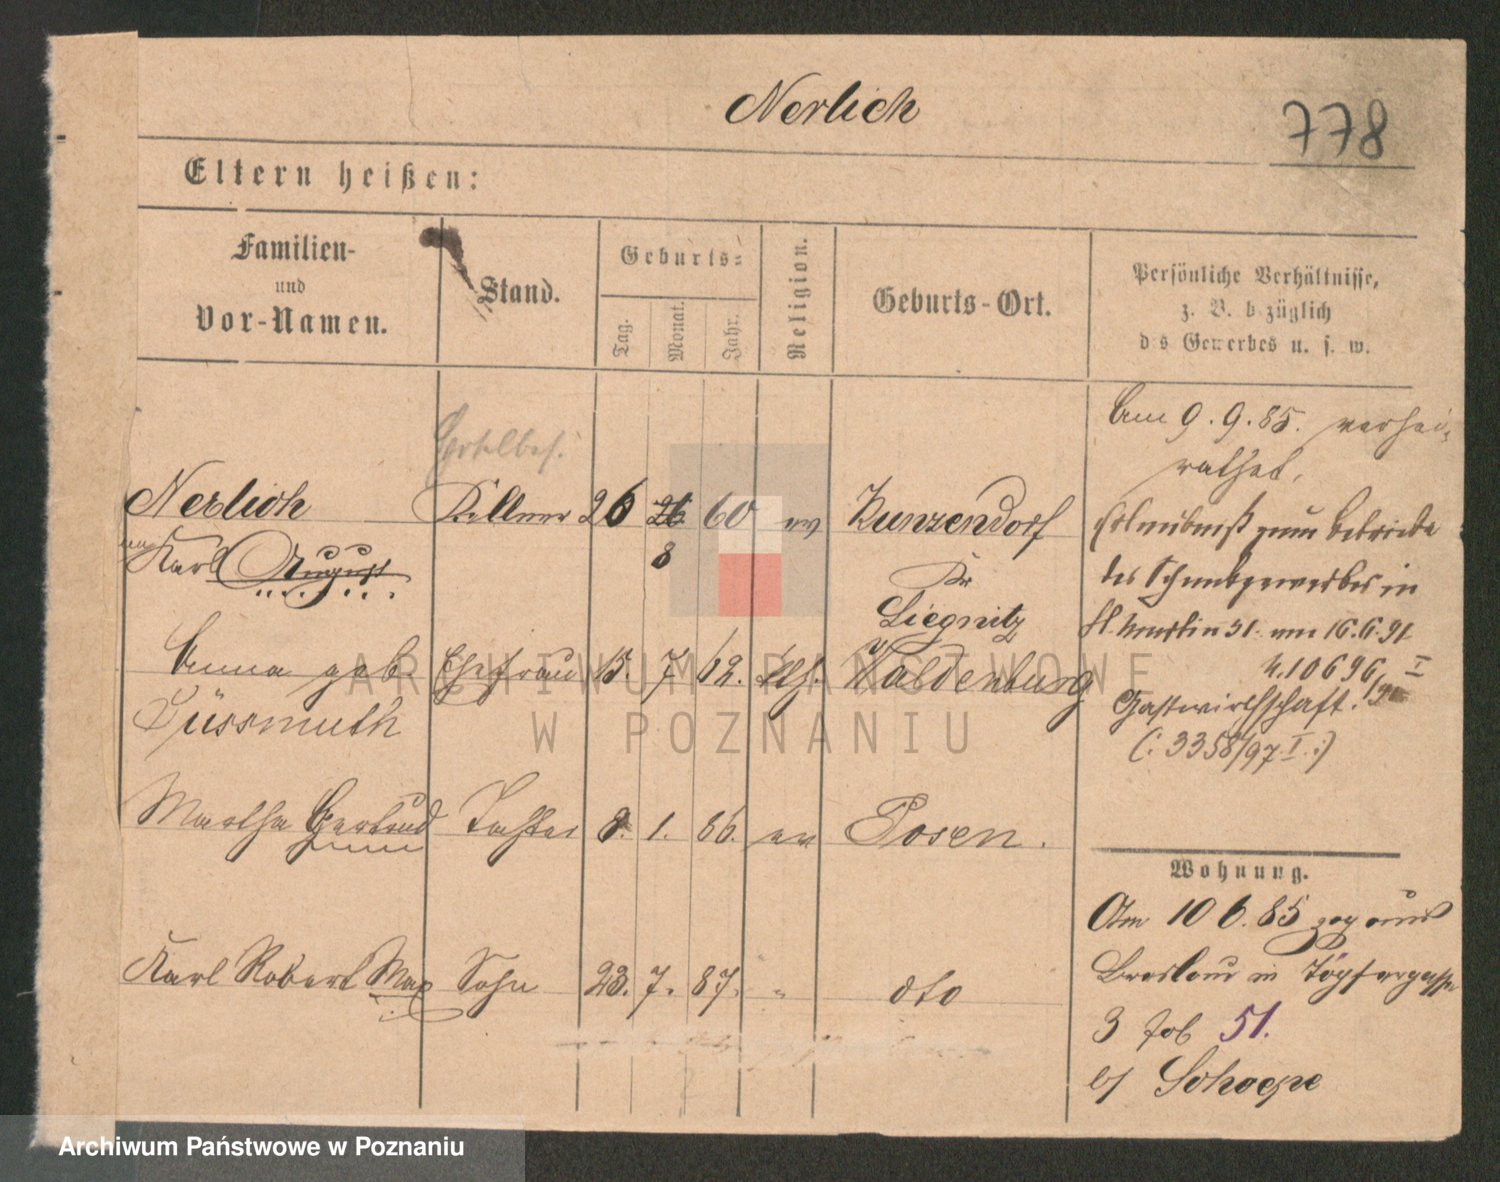 Nerlich
778
Eltern heißen:
Familien-
und
Vor-Namen.
Stand.
Geburts-
Tag.
Monat.
Jahr.
Religion.
Geburts-Ort.
Persönliche Verhältnisse,
z. B. bezüglich
des Gewerbes u. s. w.
Hotelbes.
Nerlich Kellner 26 26 60 ev Kunzendorf
Karl August 8
Kr
Liegnitz
Anna geb. Ehefrau 15. 7 62. kth. Waldenburg
Süssmuth
Martha Gertrud Tochter 8. 1. 86. ev Posen.
Karl Robert Max Sohn 23. 7. 87. " dto
Am 9.9.85. verhei-
rathet.
Erlaubniß zum Betriebe
des Schankgewerbes in
St. Martin 31. am 16.6.91
10696 I
Gastwirthschaft.
(: 3358/97 I. :)
Wohnung.
Am 10 6.85 zog aus
Breslau n Töpfergasse
3 51.
b/ Schoepe
ARCHIWUM PAŃSTWOWE
W POZNANIU
Archiwum Państwowe w Poznaniu